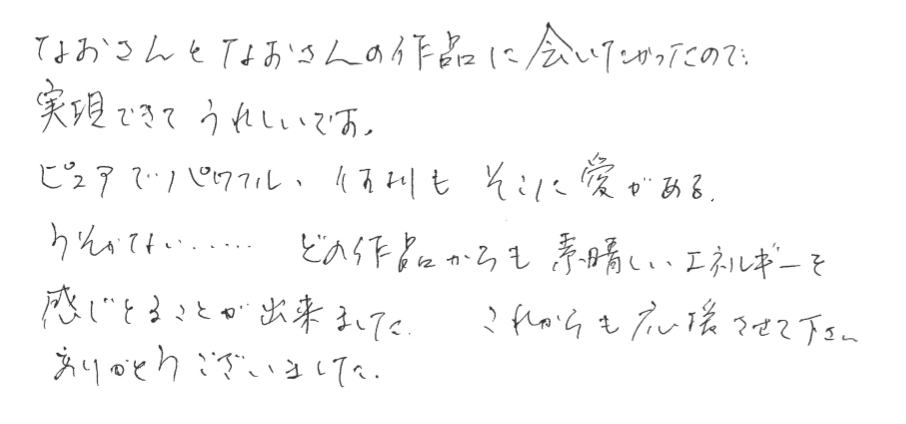 なおさんとなおさんの作品に会いたかったので
実現できてうれしいです。
ピュアでパワフル、何よりもそこに愛がある。
うそがない…… どの作品からも素晴しいエネルギーを
感じとることが出来ました。 これからも応援させて下さい
ありがとうございました。